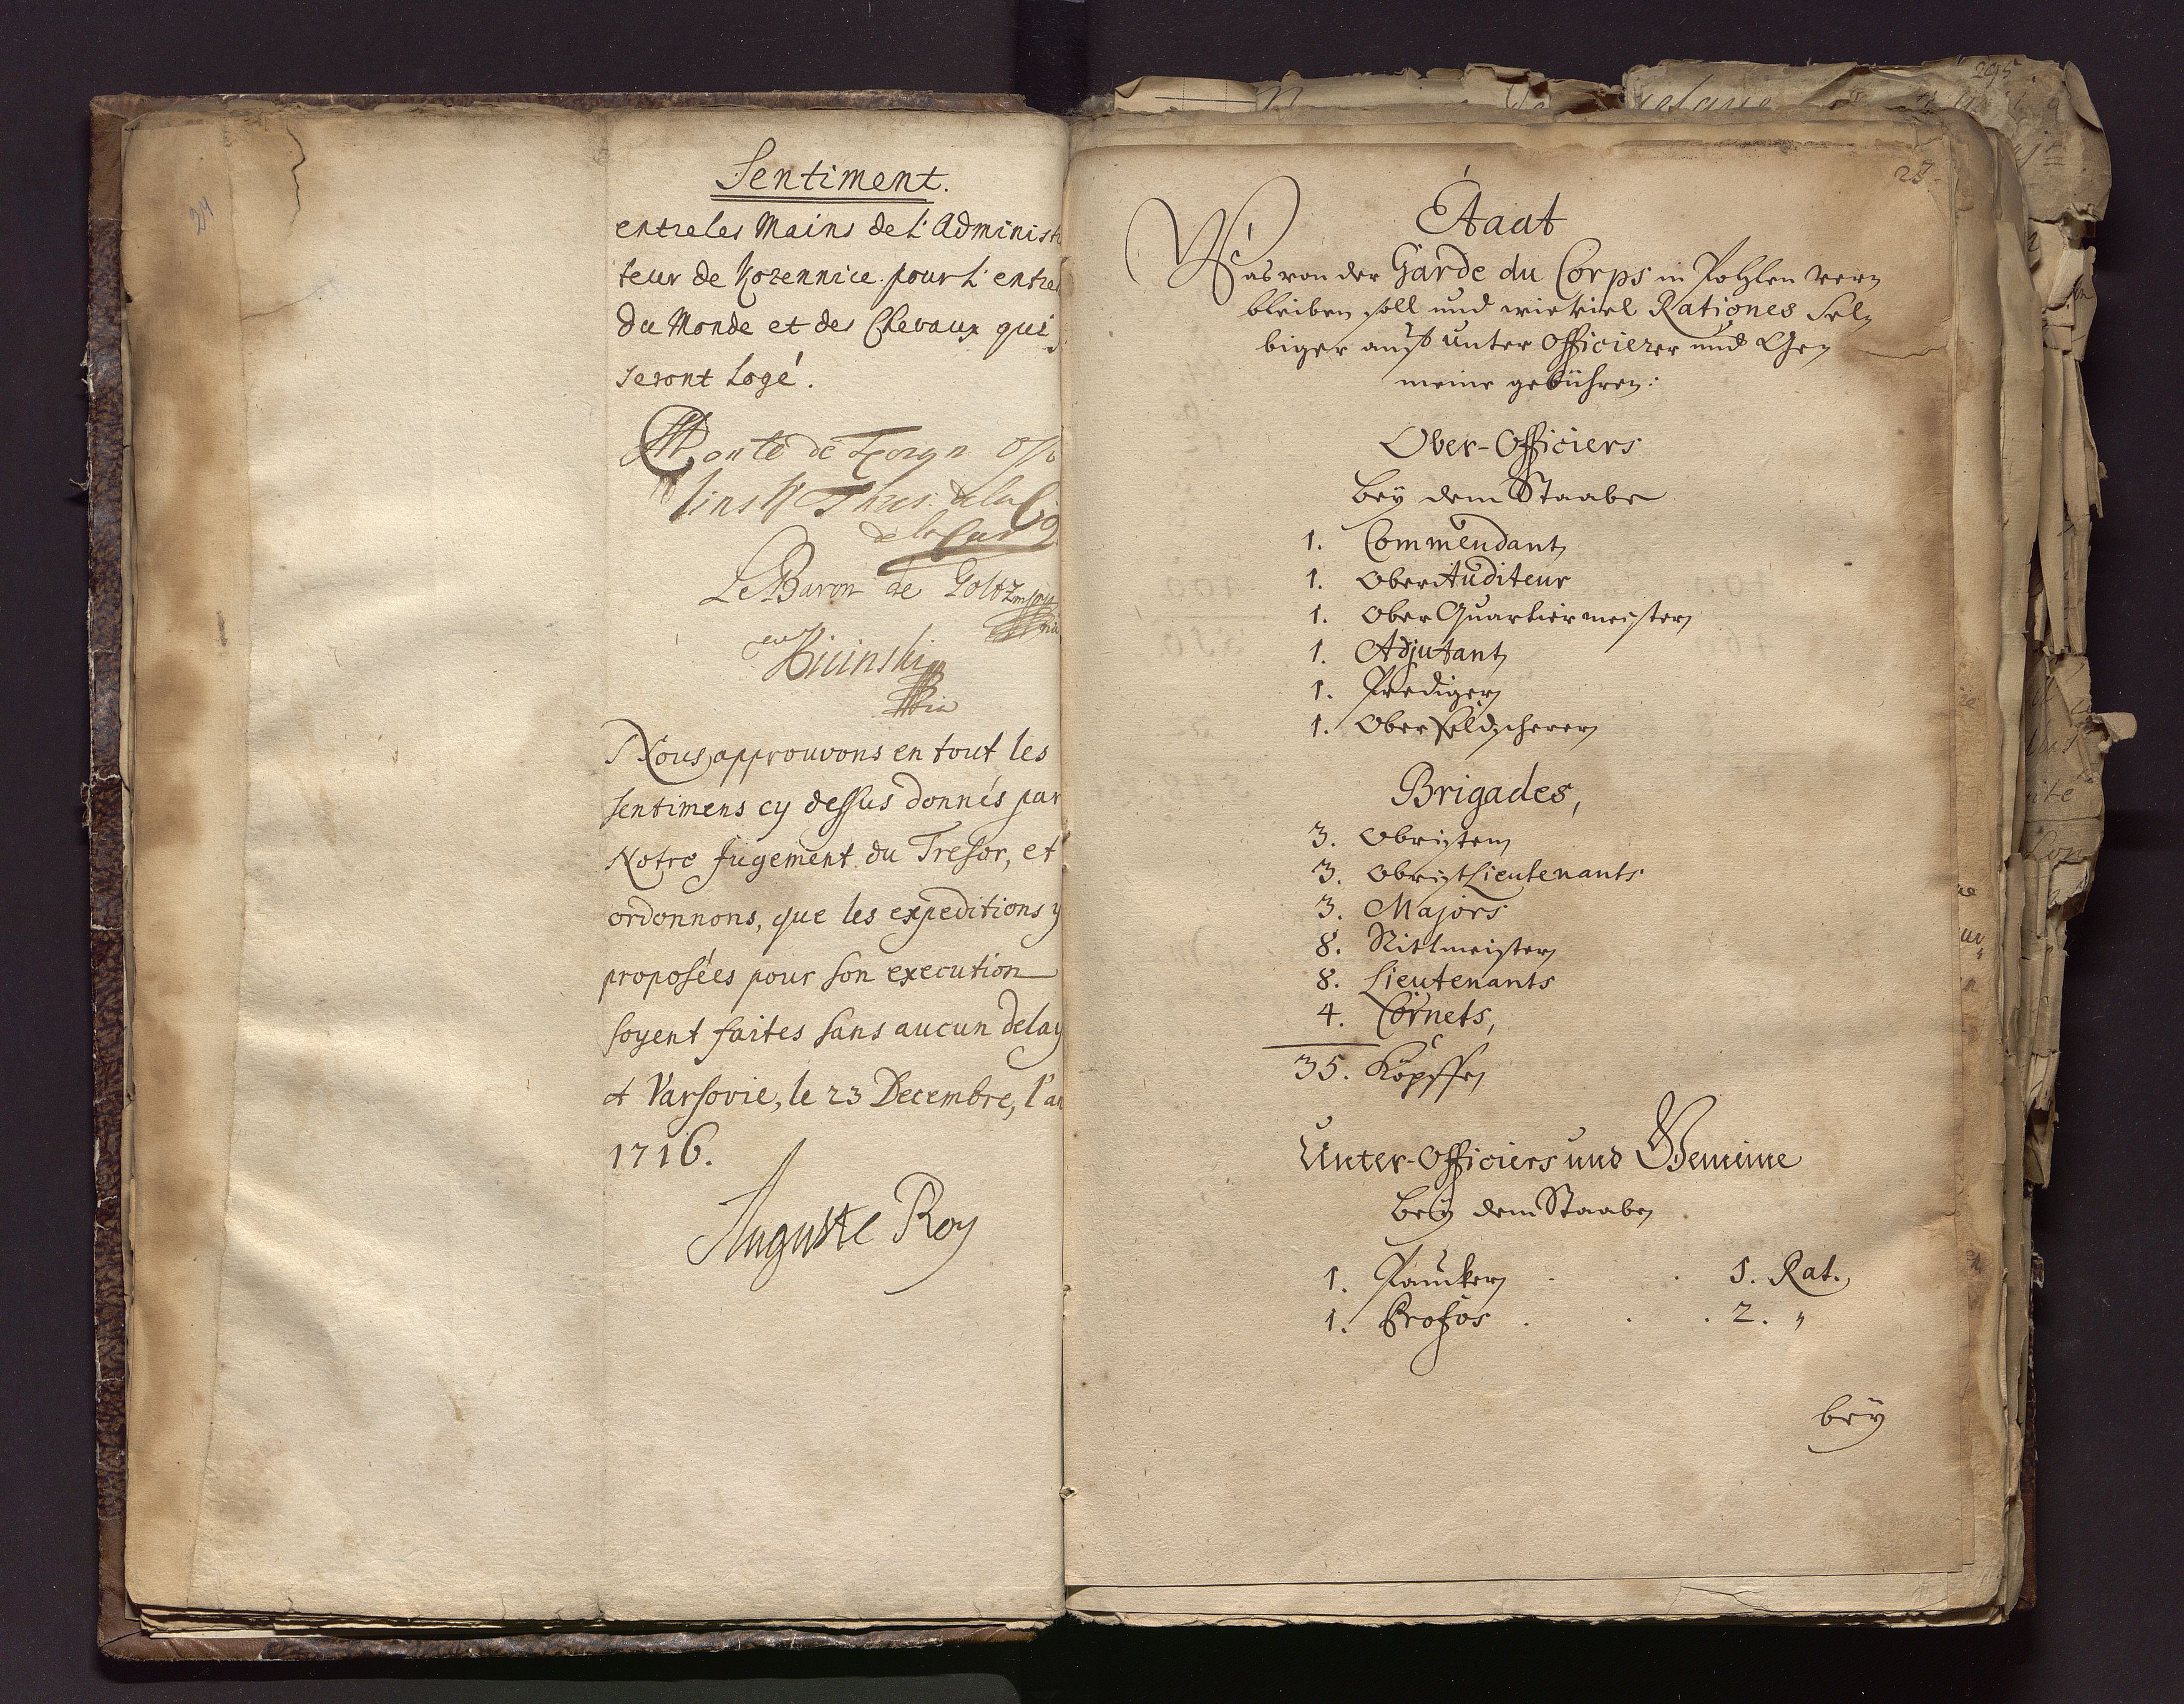 24
Sentiment.
entre les Mains de L'Administ
teur de Kozennice pour L'entre
du Monde et des Chevaux qui
seront Logé.
Le Baron de Goltz
Nous approuvons en tout les
sentimens cy dessus donnés par
Notre Jugement du Tresor, et
ordonnons, que les expeditions y
proposées pour son execution
soyent faites sans aucun delay
à Varsovie, le 23 Decembre, l'an
1716.
Auguste Roy
295
Etaat
Was von der Garde du Corps in Pohlen ver,
bleiben soll und wieviel Rationes sel,
biger auf unter Officierer und Ge,
meine gebühren:
Ober-Officiers
bey dem Staabe
1. Commendant
1. Ober Auditeur
1. Ober Quartiermeister
1. Adjutant
1. Prediger
1. Ober Feldscherer
Brigades,
3. Obristen
3. Obrist Lieutenants
3. Majors
8. Rittmeister
8. Lieutenants
4. Cornets,
35. Köpffe
Unter-Officiers und Gemeine
bey dem Staabe
1. Paucker . . 5. Rat.
1. Profos . . . 2. "
bey